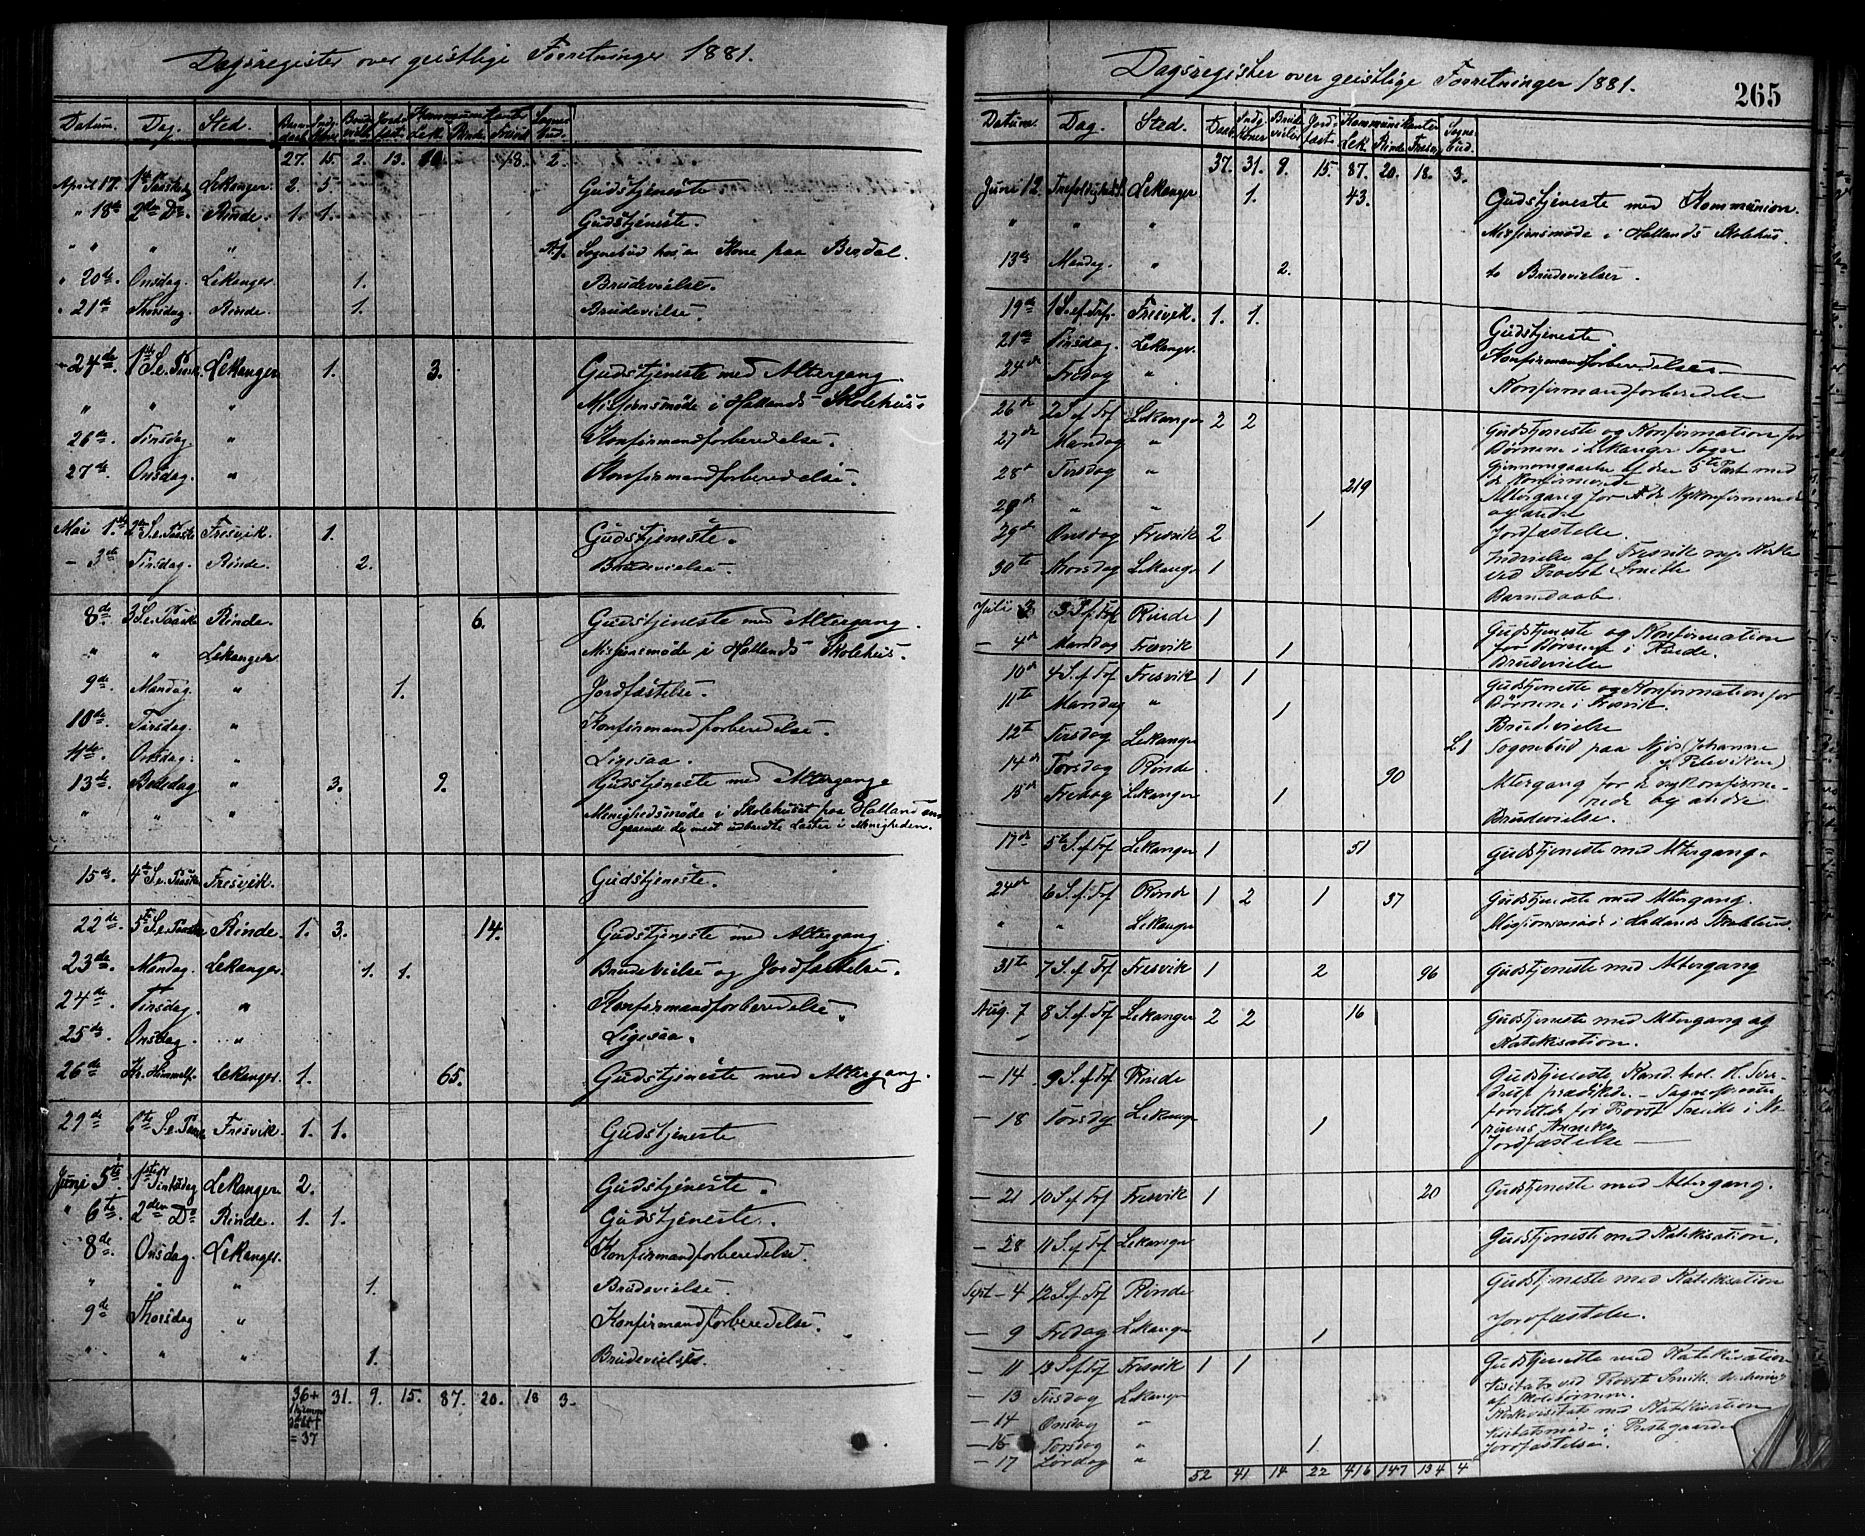 Dagsregister over geistlige Forretninger 1881.
Datum. Dag. Sted. Barne daab Indg. Kone Brude vielse Jorde fæst. Kommuni kanter Lek. Rinde Fresvik Sogne bud.
27. 15. 2. 13. 18. 2.
April 17. 1ste Paaskedg Lekanger. 2. 5. Gudstjeneste
" 18de 2den Do. Rinde. 1. 1. Gudstjeneste.
" " " " Sognebud hos en Kone paa
" 20de Onsdag. Lekanger 1. Brudevielse.
" 21de Thorsdag Rinde. 1. Brudevielse.
- 24de 1ste S.e.Paask. Lekanger 1. 3. Gudstjeneste med Altergang.
" " " Missionsmøde i Hallands Skolehus.
26de Tirsdag " Konfirmandforberedelse.
27de Onsdag. " Konfirmandforberedelse.
Mai 1ste 2den S.e.Paaske Fresvik. 1. Gudstjeneste.
- 3de Tirsdag. Rinde. 2. Brudevielse.
8de 3 S.e.Paaske Rinde. 6. Gudstjeneste med Altergang.
" " Lekanger Missionsmøde i Hallands Skolehus.
9de Mandag. " 1. Jordfæstelse.
10de Tirsdag. " Konfirmandforberedelse.
11te Onsdag. " Ligesaa.
13de Bededag " 3. 9. Gudstjeneste med Altergang
" " " Menighedsmøde i Skolehuset paa Halland an-
gaaende de mest udbredte Laster i Menigheden.
15de 4de S.e.Paaske Fresvik. Gudstjeneste.
22de 5te S.e.Paaske Rinde. 1. 3. 14. Gudstjeneste med Altergang.
23de Mandag. Lekanger. 1. 1. Brudevielse og Jordfæstelse.
24de Tirsdag. " Konfirmandforberedelse.
25de Onsdag. " Ligesaa.
26de Kr. Himmelf. Lekanger. 1. 65. Gudstjeneste med Altergang.
29de 6te S.e.Paaske Fresvik. 1. 1. Gudstjeneste
Juni 5te 1ste Pintsdag Lekanger 2. Gudstjeneste.
" 6te 2den Do Rinde. 1. 1. Gudstjeneste.
8de Onsdag. Lekanger. Konfirmandforberedelse.
" " " 1. Brudevielse.
9de Thorsdag " Konfirmandforberedelse.
" " " 1. Brudevielse.
36+ 31. 9. 15. 87. 20. 18 3.
1 hjemme
døbt
= 37
Dagsregister over geistlige Forretninger 1881.
265
Datum. Dag. Sted. Daab Indg. Koner Brude vielse Jord fæst. Kommunikanter Lek. Rinde Fresvig Sogne bud.
37. 31. 9. 15. 87. 20. 18. 3.
Juni 12. Trefoldighedsf. Lekanger 1. 43. Gudstjeneste med Kommunion.
" " " Missionsmøde i Hallands Skolehus.
13de Mandag. " 2. to Brudevielser.
19de 1 S.ef.Trf. Fresvik. 1. 1. Gudstjeneste
21de Tirsdag. Lekangr. Konfirmandforberedelse
24de Fredag " Konfirmandforberedelse
26de 2 S.ef.Trf Lekanger 2 2 Gudstjeneste og Konfirmation for
Børnene i Lekanger Sogn
27de Mandag "
28de Tirsdag " Gjennemgaaelse af den 5te Part med
de Konfirmerede
219 Altergang for de Nykonfirmerede
og andre
" " 1 Jordfæstelse.
29de Onsdag Fresvik 2 Indvielse af Fresvik nye Kirke
ved Provst
30te Torsdag Lekanger 1 Barnedaab.
Juli 3 3 S.ef.Trf Rinde 1 Gudstjeneste og Konfirmation
for Børnene i Rinde.
- 4de Mandag Fresvik 1 Brudevielse
10de 4 S.ef.Trf Fresvik 1 1 Gudstjeneste og Konfirmation for
Børnene i Fresvik.
11te Mandag " 1 Brudevielse
12te Tirsdag Lekanger L1 Sognebud paa Njøs (Johanne
14de Torsdag Rinde 90 Altergang for nykonfirme-
rede og andre
15de Fredag Lekanger 1 Brudevielse.
17de 5te S.ef.Trf Lekanger 1 51 Gudstjeneste med Altergang.
24de 6 S.ef.Trf Rinde 1 2 1 37 Gudstjeneste med Altergang.
" " Lekanger Missionsmøde i Hallands Skolehus.
31te 7 S.ef.Trf Fresvik 1 2 96 Gudstjeneste med Altergang
Aug. 7 8 S.ef.Trf Lekanger 2 2 16 Gudstjeneste med Altergang og
Katekisation.
- 14 9 S.ef.Trf Rinde Gudstjeneste Kand. teol. H. Sver-
drup prædikede. - Sognepræsten
forrettede for Provst i
- 18 Torsdag Lekanger 1 Jordfæstelse
- 21 10 S.ef.Trf Fresvik 1 20 Gudstjeneste med Altergang.
- 28 11 S.ef.Trf Lekanger Gudstjeneste med Katekisation.
Sept - 4 12 S.ef.Trf Rinde Gudstjeneste med Katekisation
- 9 Fredag Lekanger 1 Jordfæstelse.
- 11 13 S.ef.Trf Fresvik 1 1 Gudstjeneste med Katekisation
- 13 Tirsdag Lekanger Visitats ved Provst
af Skolebørnene.
- 14 Onsdag " Kirkevisitats med Katekisation
- 15 Torsdag " Visitatsmøde i Prestegaarden
- 17 Lørdag " 1. Jordfæstelse.
52 41 14 22 416 147 134 4